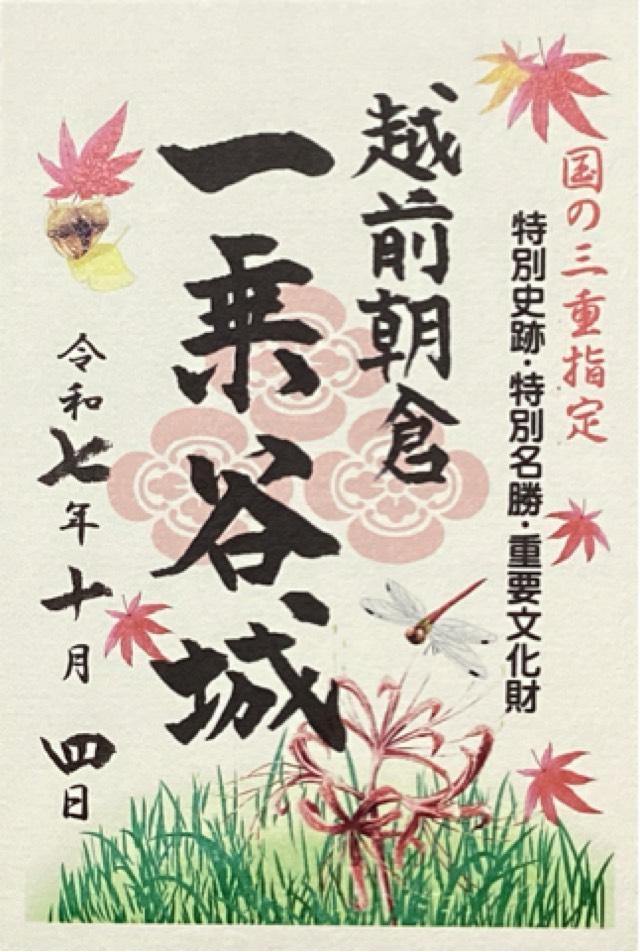 国の三重指定
特別史跡・特別名勝・重要文化財
越前朝倉
一乗谷城
令和七年十月四日